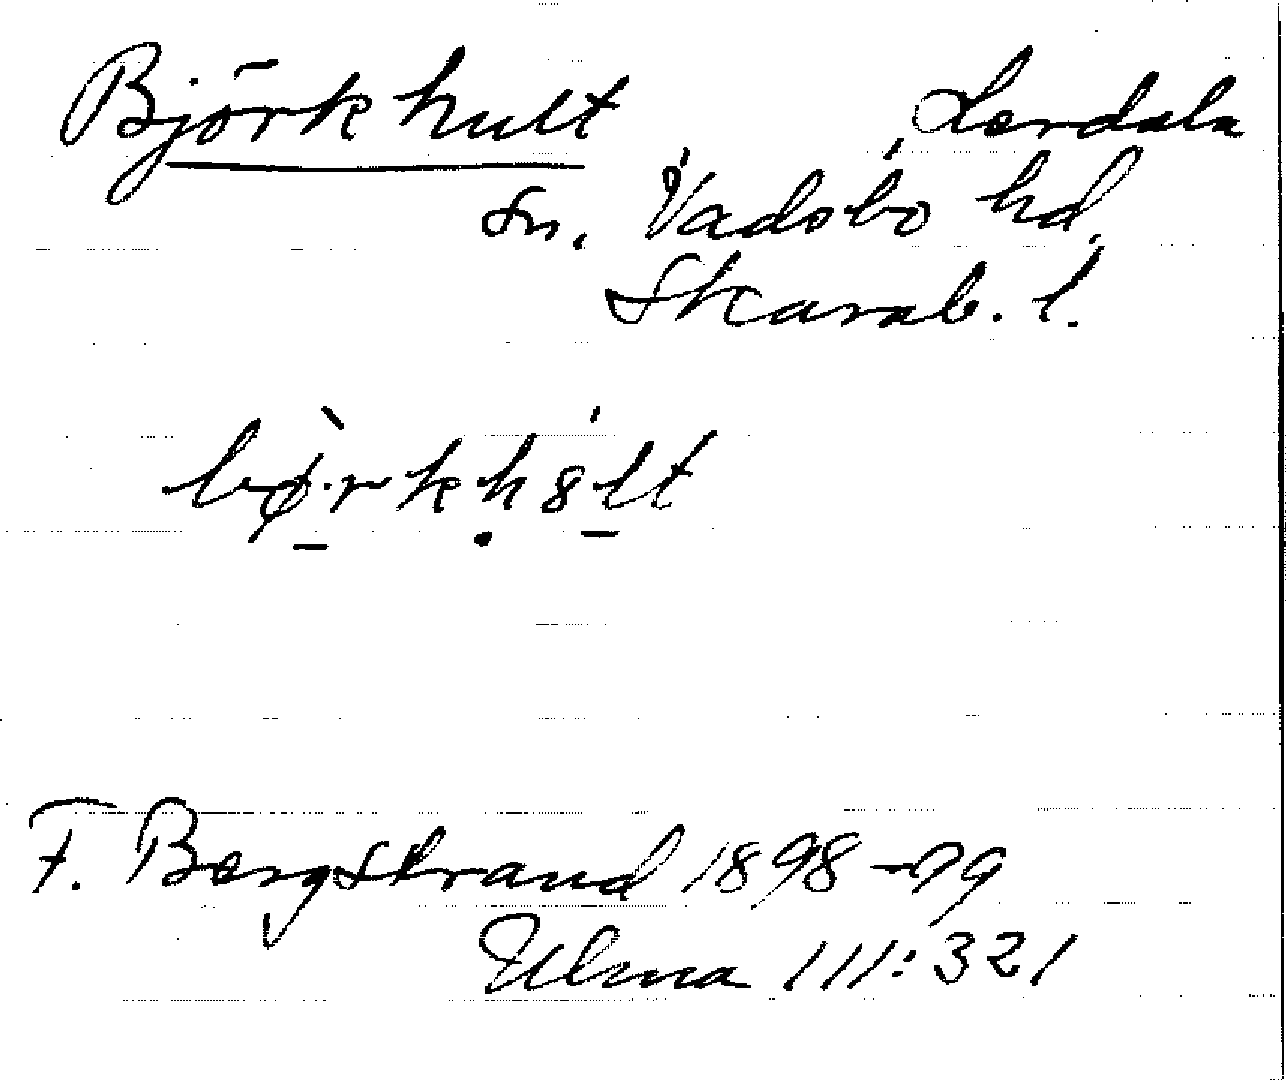 Björkhult Lerdala
sn. Vadsbo hd.
Skarab. l.
F. Bergstrand 1898-99
Ulma 111:321